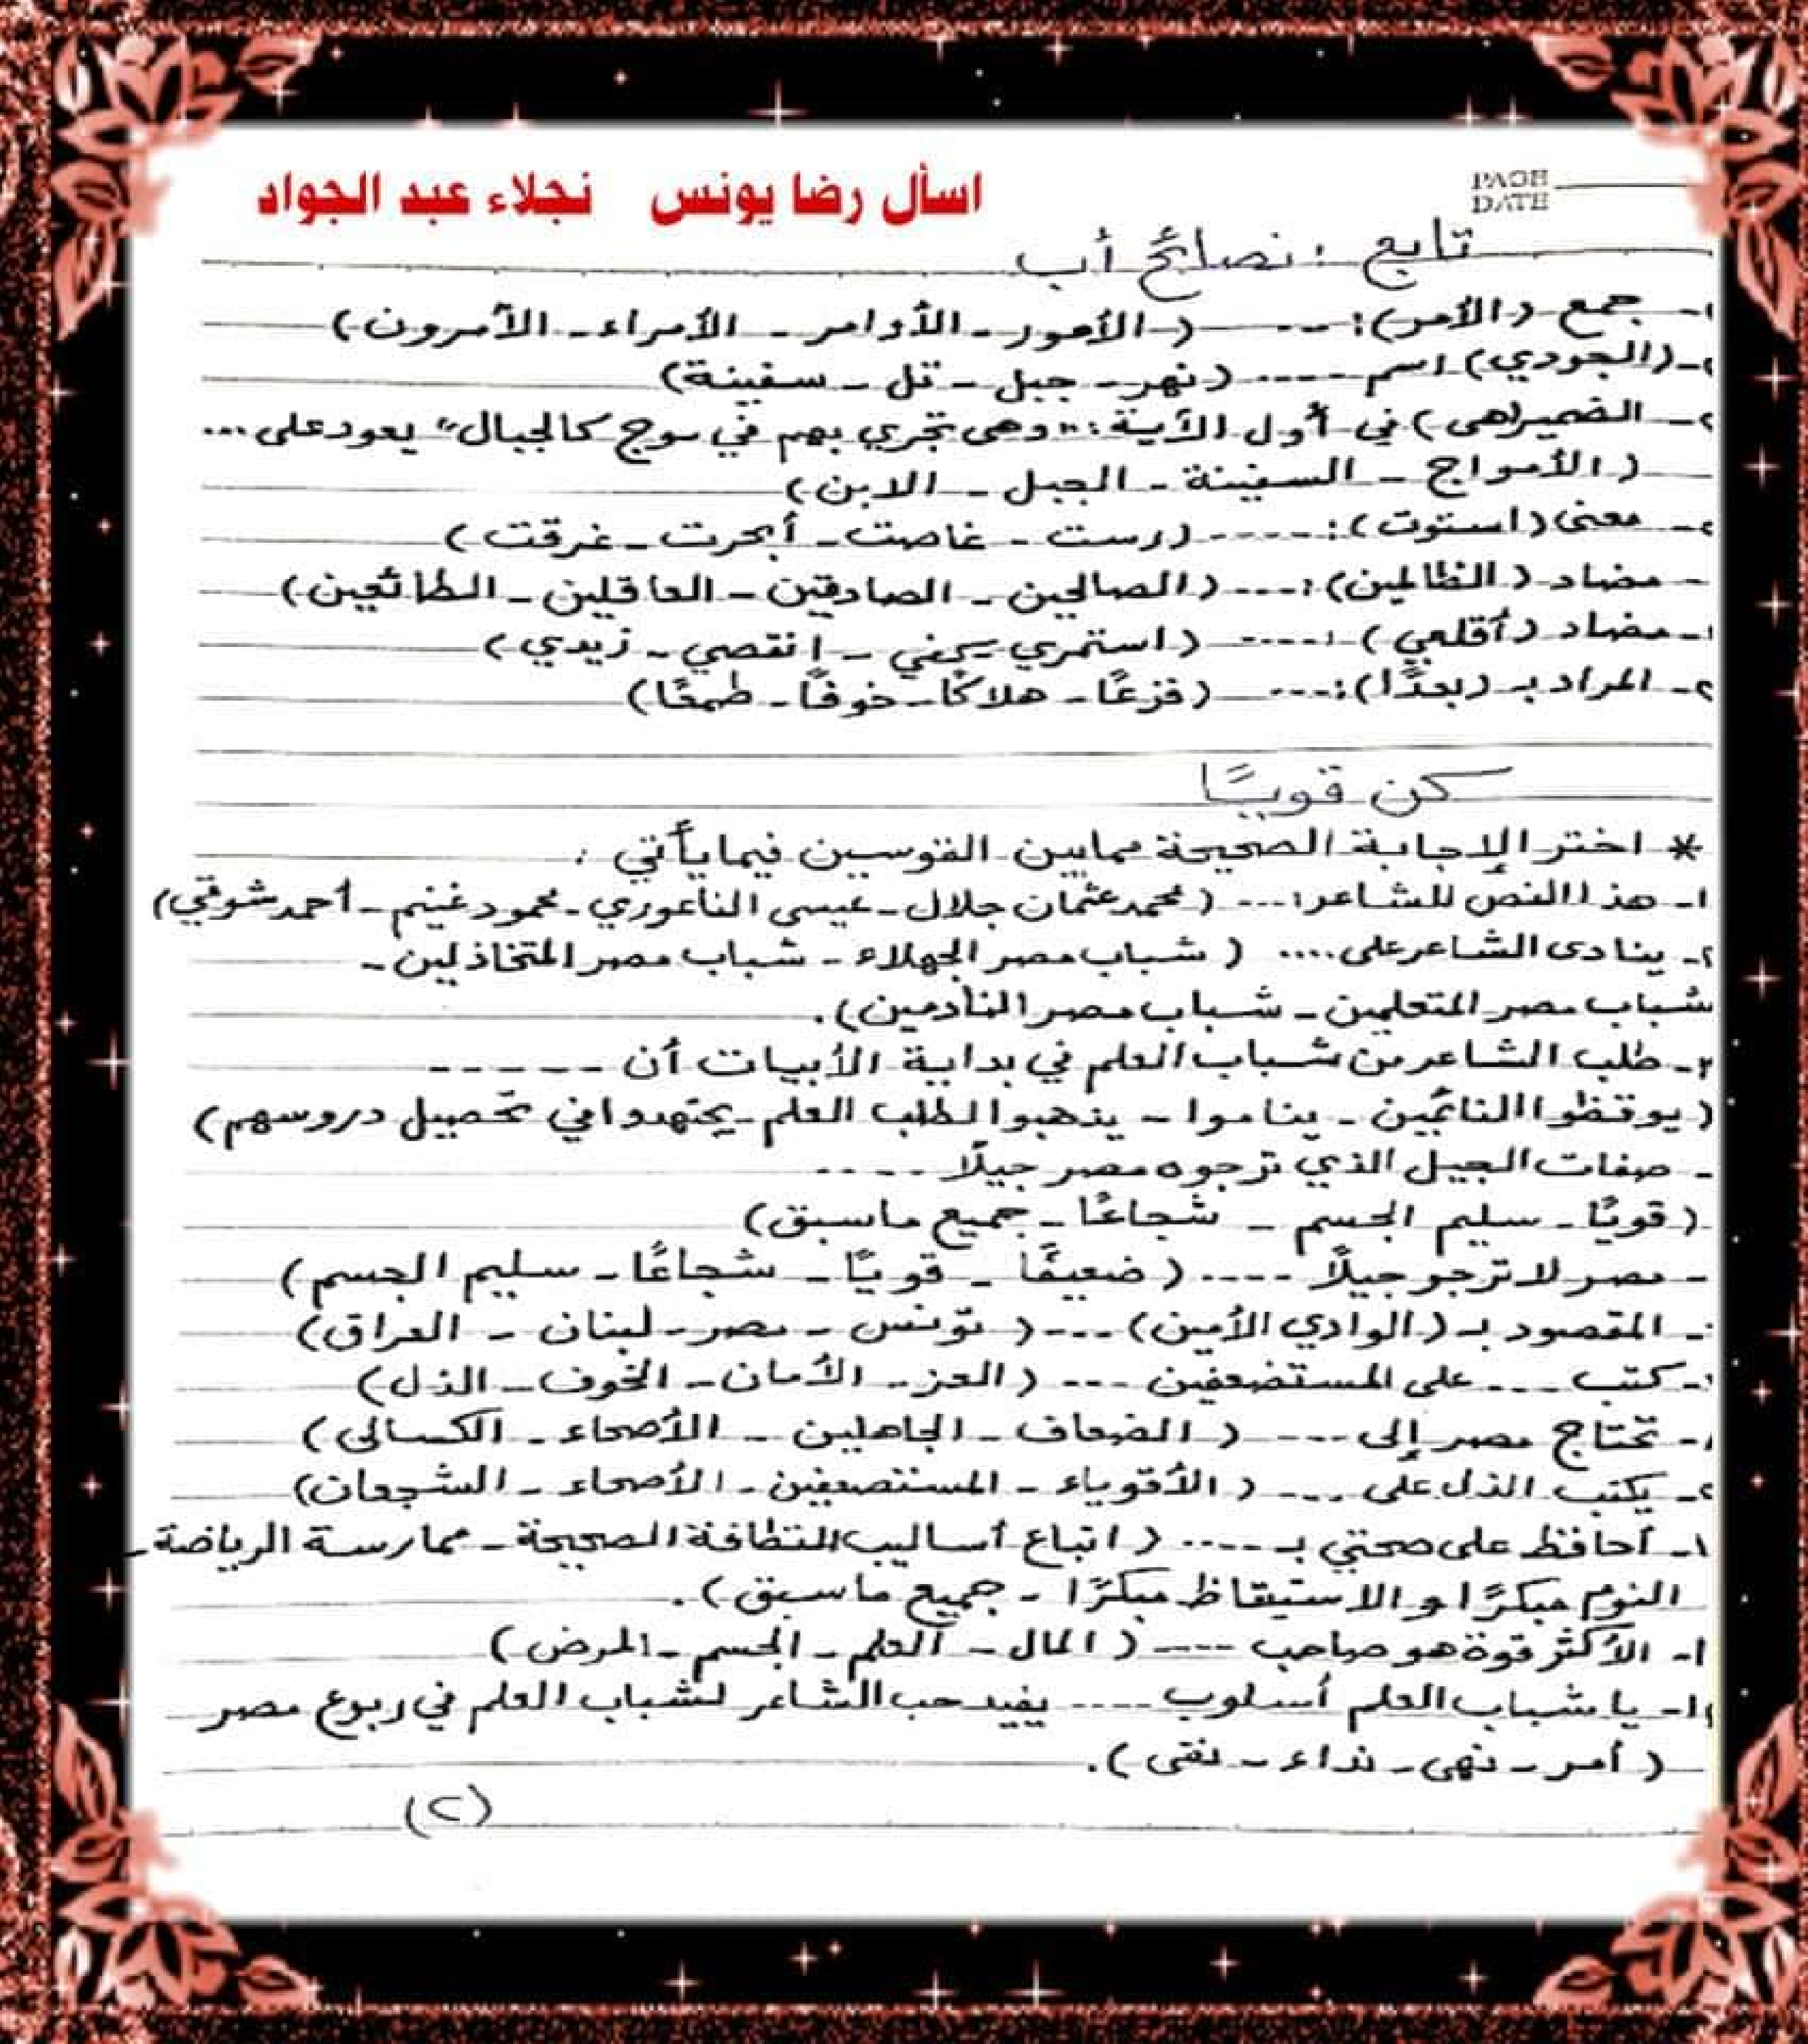 اسأل رضا يونس   نجلاء عبد الجواد
PAGE
DATE
تابع : نصائح أب
١- جمع (الأمر): ... (الأمور - الأوامر - الأمراء - الآمرون)
-(الجودي) اسم .... (نهر - جبل - تل - سفينة)
- الضمير (هى) في أول الآية: "وهى تجري بهم في موج كالجبال" يعود على ...
(الأمواج - السفينة - الجبل - الابن)
- معنى (استوت): ..... (رست - غاصت - أبحرت - غرقت)
- مضاد (الظالمين): .... (الصالحين - الصادقين - العاقلين - الطائعين)
- مضاد (أقلعي): ..... (استمري - انقصي - زيدي)
- المراد بـ (بعدًا): .... (فزعًا - هلاكًا - خوفًا - طمعًا)
كن قويًا
* اختر الإجابة الصحيحة مما بين القوسين فيما يأتي :
١- هذا النص للشاعر: ... (محمد عثمان جلال - عيسى الناعوري - محمود غنيم - أحمد شوقي)
٢- ينادى الشاعر على .... ( شباب مصر الجهلاء - شباب مصر المتخاذلين -
شباب مصر المتعلمين - شباب مصر النادمين ).
٣- طلب الشاعر من شباب العلم في بداية الأبيات أن -----
( يوقظوا النائمين - يناموا - يذهبوا لطلب العلم - يجتهدوا في تحصيل دروسهم )
- صفات الجيل الذي ترجوه مصر جيلًا ....
( قويًا - سليم الجسم - شجاعًا - جميع ما سبق)
- مصر لا ترجو جيلًا .... ( ضعيفًا - قويًا - شجاعًا - سليم الجسم )
- المقصود بـ (الوادي الأمين) ... ( تونس - مصر - لبنان - العراق )
- كتب ... على المستضعفين ... ( العز - الأمان - الخوف - الذل )
- تحتاج مصر إلى .... ( الضعاف - الجاهلين - الأصحاء - الكسالى )
- يكتب الذل على .... ( الأقوياء - المستضعفين - الأصحاء - الشجعان)
١- أحافظ على صحتي بـ ..... ( اتباع أساليب النظافة الصحيحة - ممارسة الرياضة -
النوم مبكرًا والاستيقاظ مبكرًا - جميع ما سبق ).
١- الأكثر قوة هو صاحب .... ( المال - العلم - الجسم - المرض )
١- يا شباب العلم أسلوب .... يفيد حب الشاعر لشباب العلم في ربوع مصر
( أمر - نهى - نداء - نفى ).
(٢)